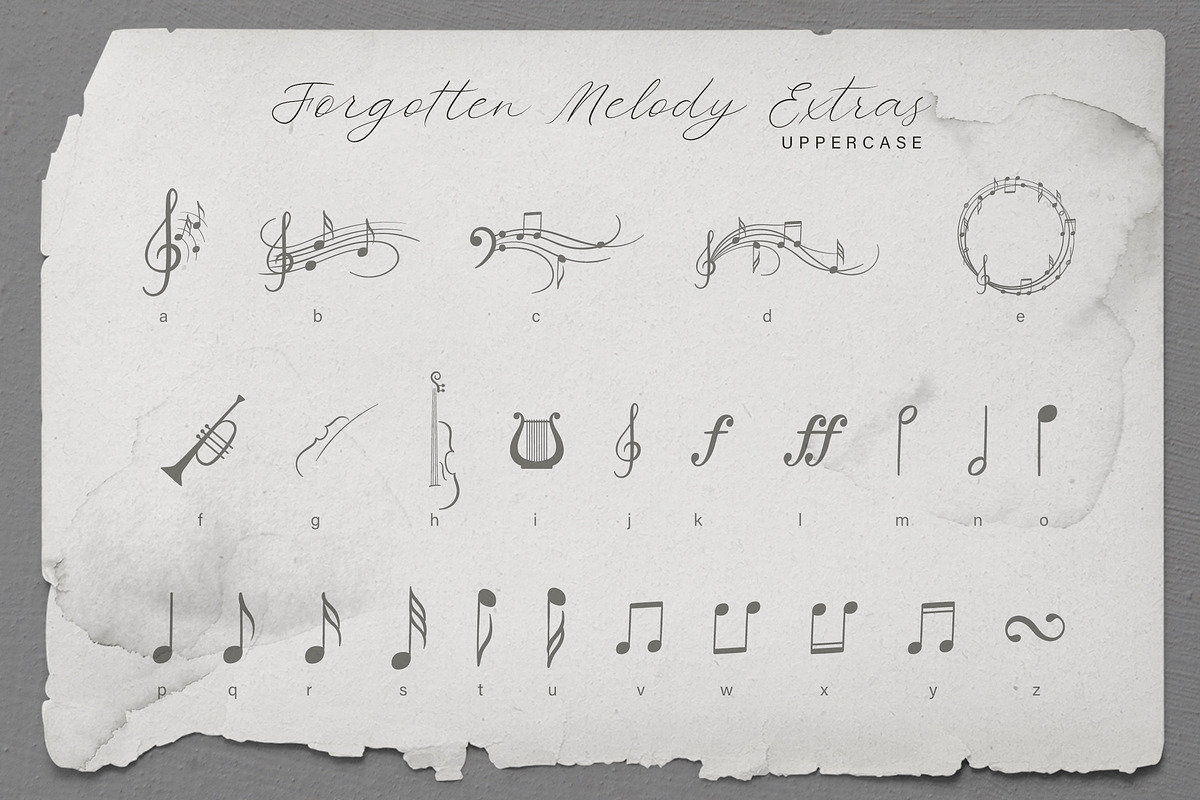 Forgotten Melody Extras
UPPERCASE
a b c d e
f g h i j k l m n o
p q r s t u v w x y z